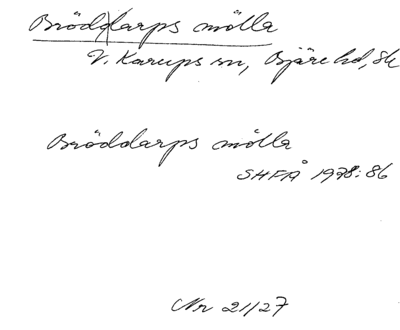 Bröddarps mölla
V. Karups sn, Bjäre hd, Sk
Bröddarps mölla
SHFÅ 1978:86
Nr 21/27